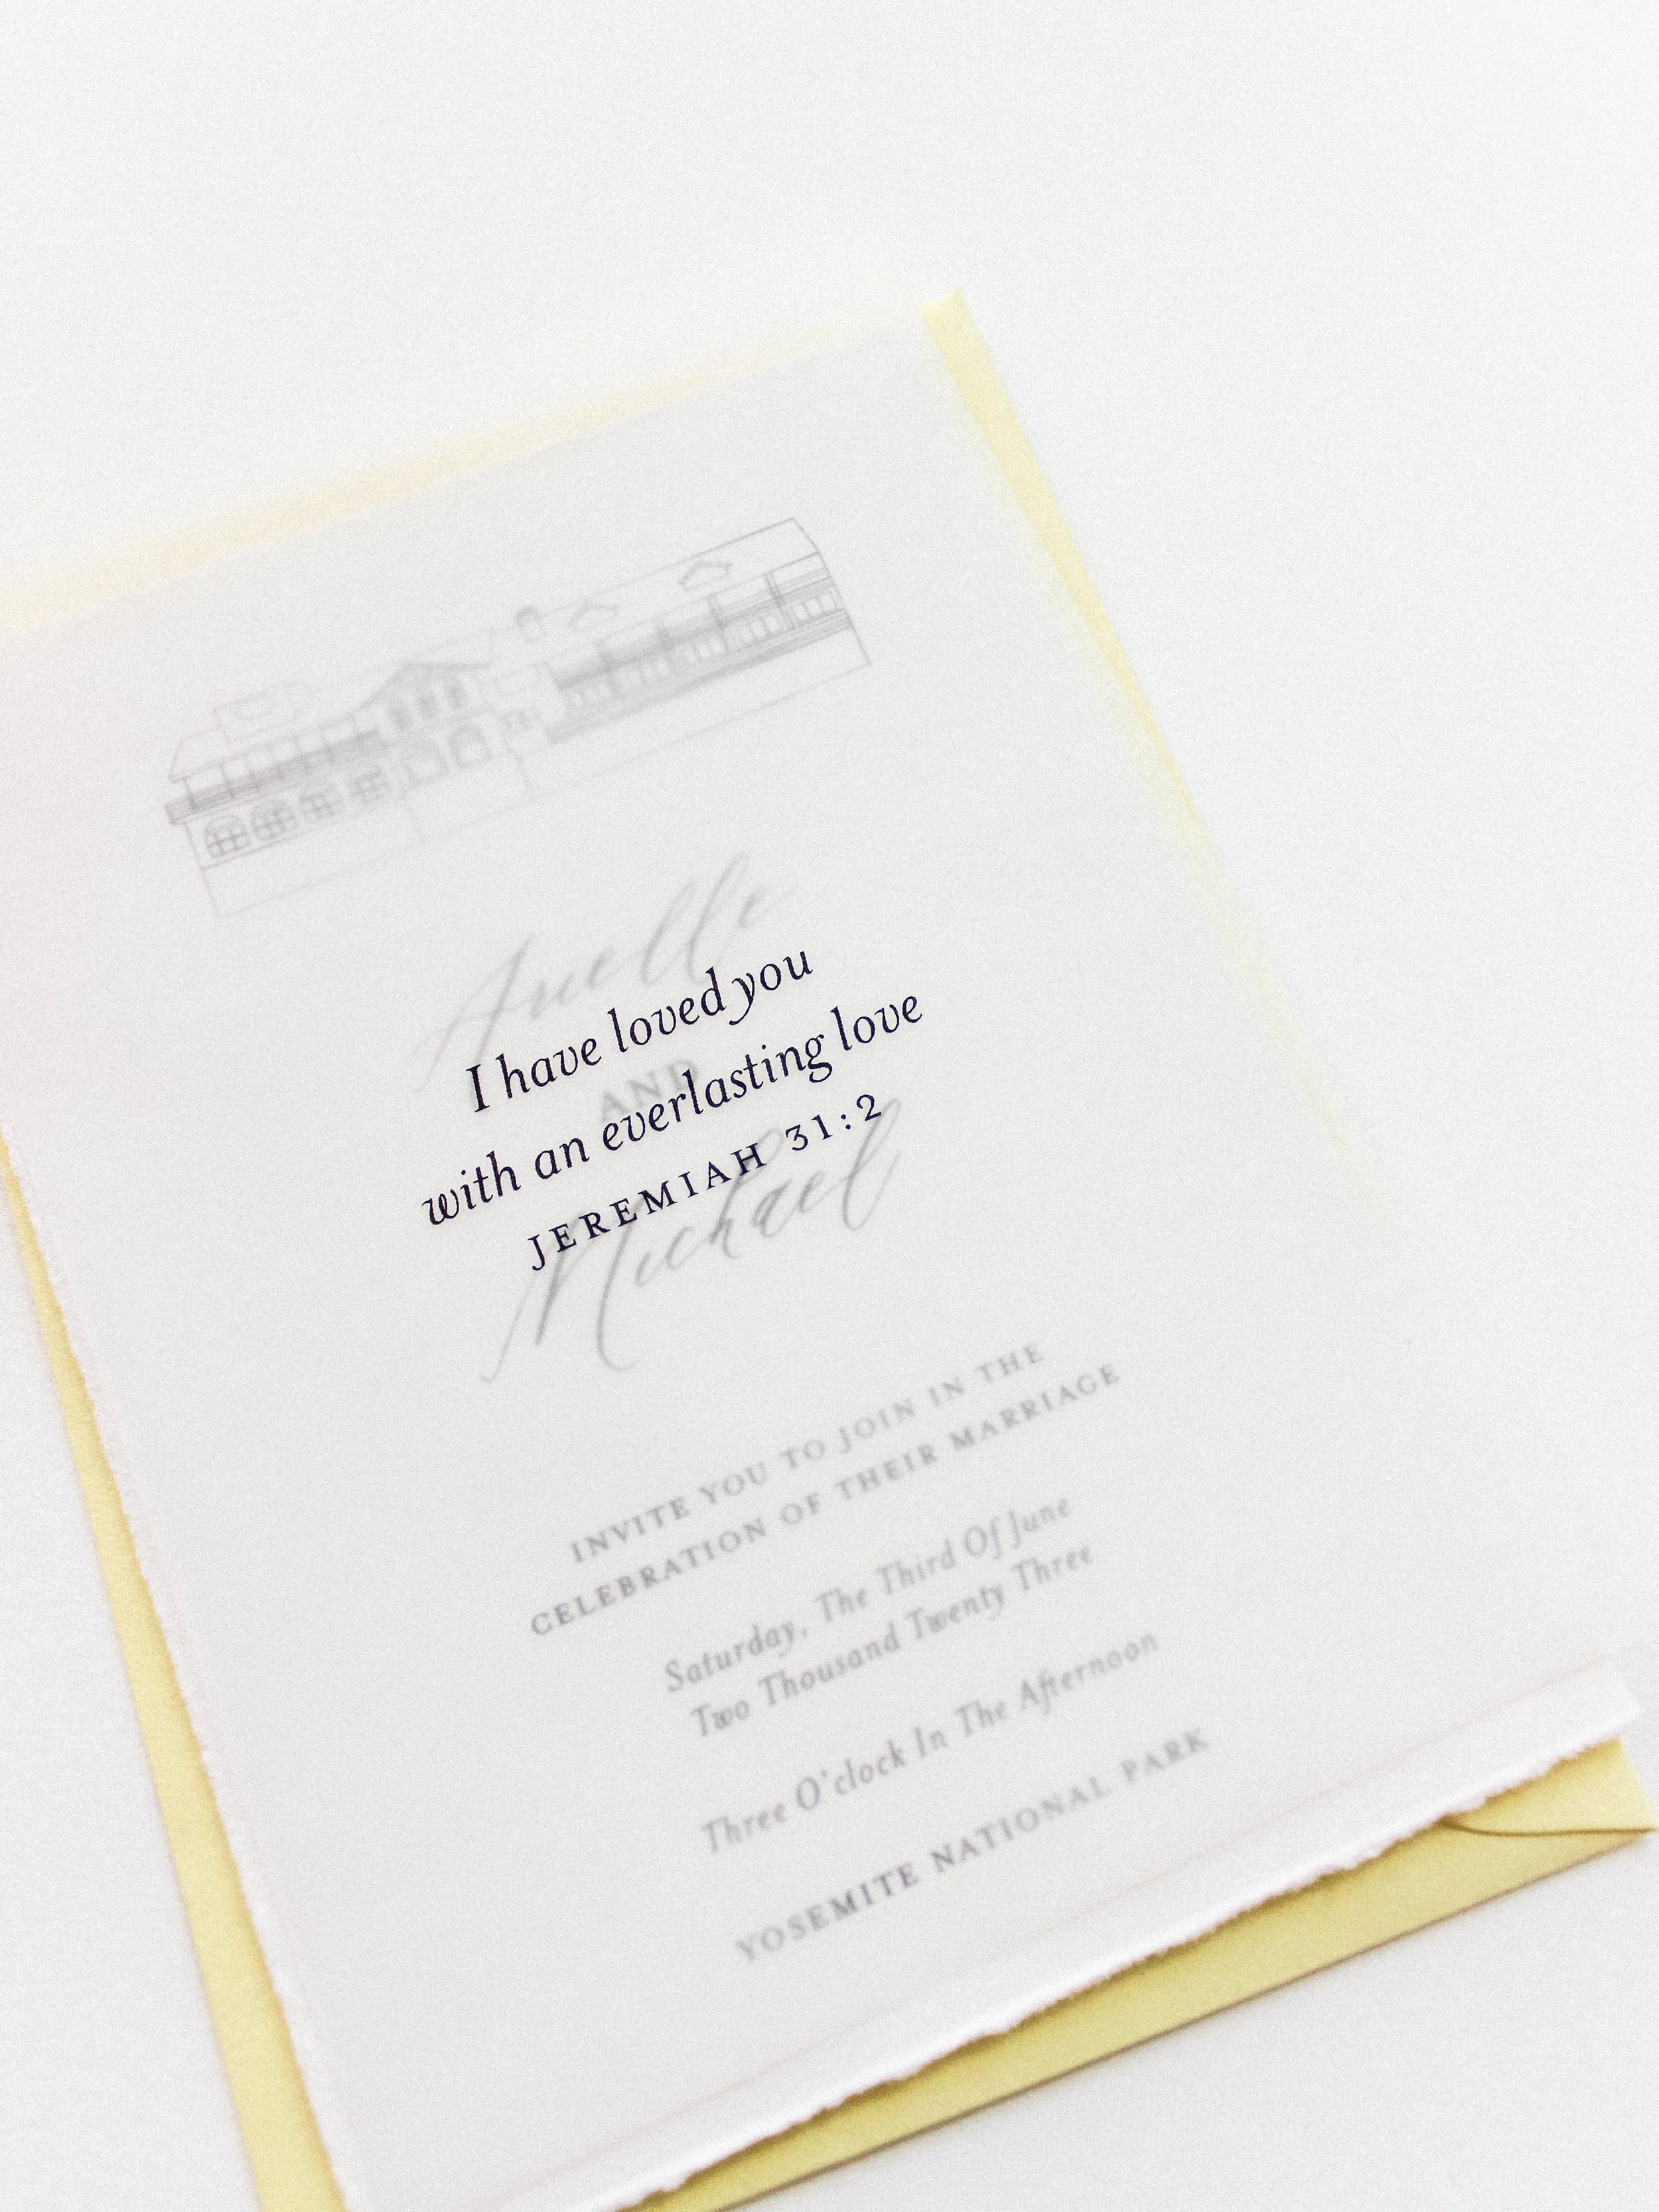 Arielle
I have loved you
AND
with an everlasting love
JEREMIAH 31:2
Michael
INVITE YOU TO JOIN IN THE
CELEBRATION OF THEIR MARRIAGE
Saturday, The Third Of June
Two Thousand Twenty Three
Three O'clock In The Afternoon
YOSEMITE NATIONAL PARK